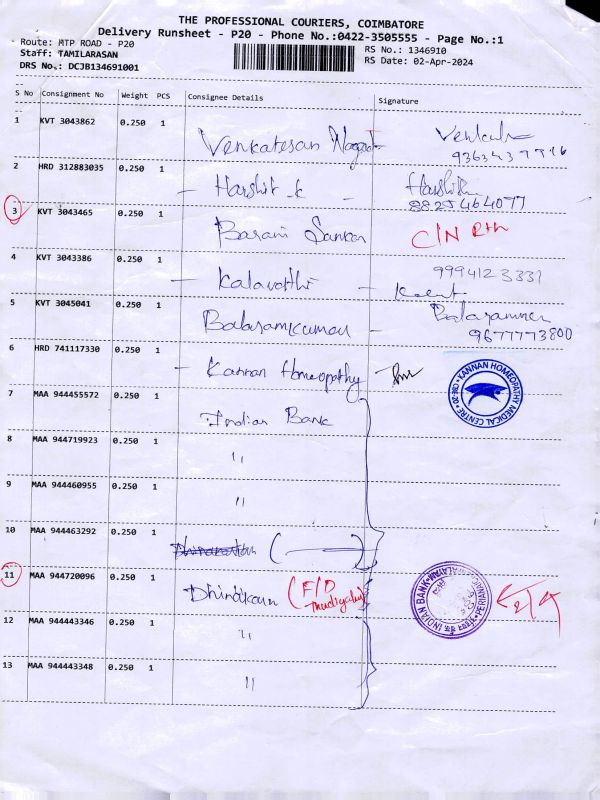 THE PROFESSIONAL COURIERS, COIMBATORE
Delivery Runsheet - P20 - Phone No.:0422-3505555 - Page No.:1
Route: MTP ROAD - P20
Staff: TAMILARASAN
DRS No.: DCJB134691001
RS No.: 1346910
RS Date: 02-Apr-2024
S No Consignment No Weight PCS Consignee Details Signature
1 KVT 3043862 0.250 1 Venkatesan
2 HRD 312883035 0.250 1 - Harshit k -
8825464077
3 KVT 3043465 0.250 1 Barani Sankar C/N
4 KVT 3043386 0.250 1 - Kalavathi - 9994123331
5 KVT 3045041 0.250 1 Balaramkumar -
9677773800
6 HRD 741117330 0.250 1 - Kannan Homeopathy
KANNAN HOMEOPATHY MEDICAL CENTRE
7 MAA 944455572 0.250 1 Indian Bank
8 MAA 944719923 0.250 1 "
9 MAA 944460955 0.250 1 "
10 MAA 944463292 0.250 1
11 MAA 944720096 0.250 1 (F/D
INDIAN BANK
12 MAA 944443346 0.250 1 "
13 MAA 944443348 0.250 1 "